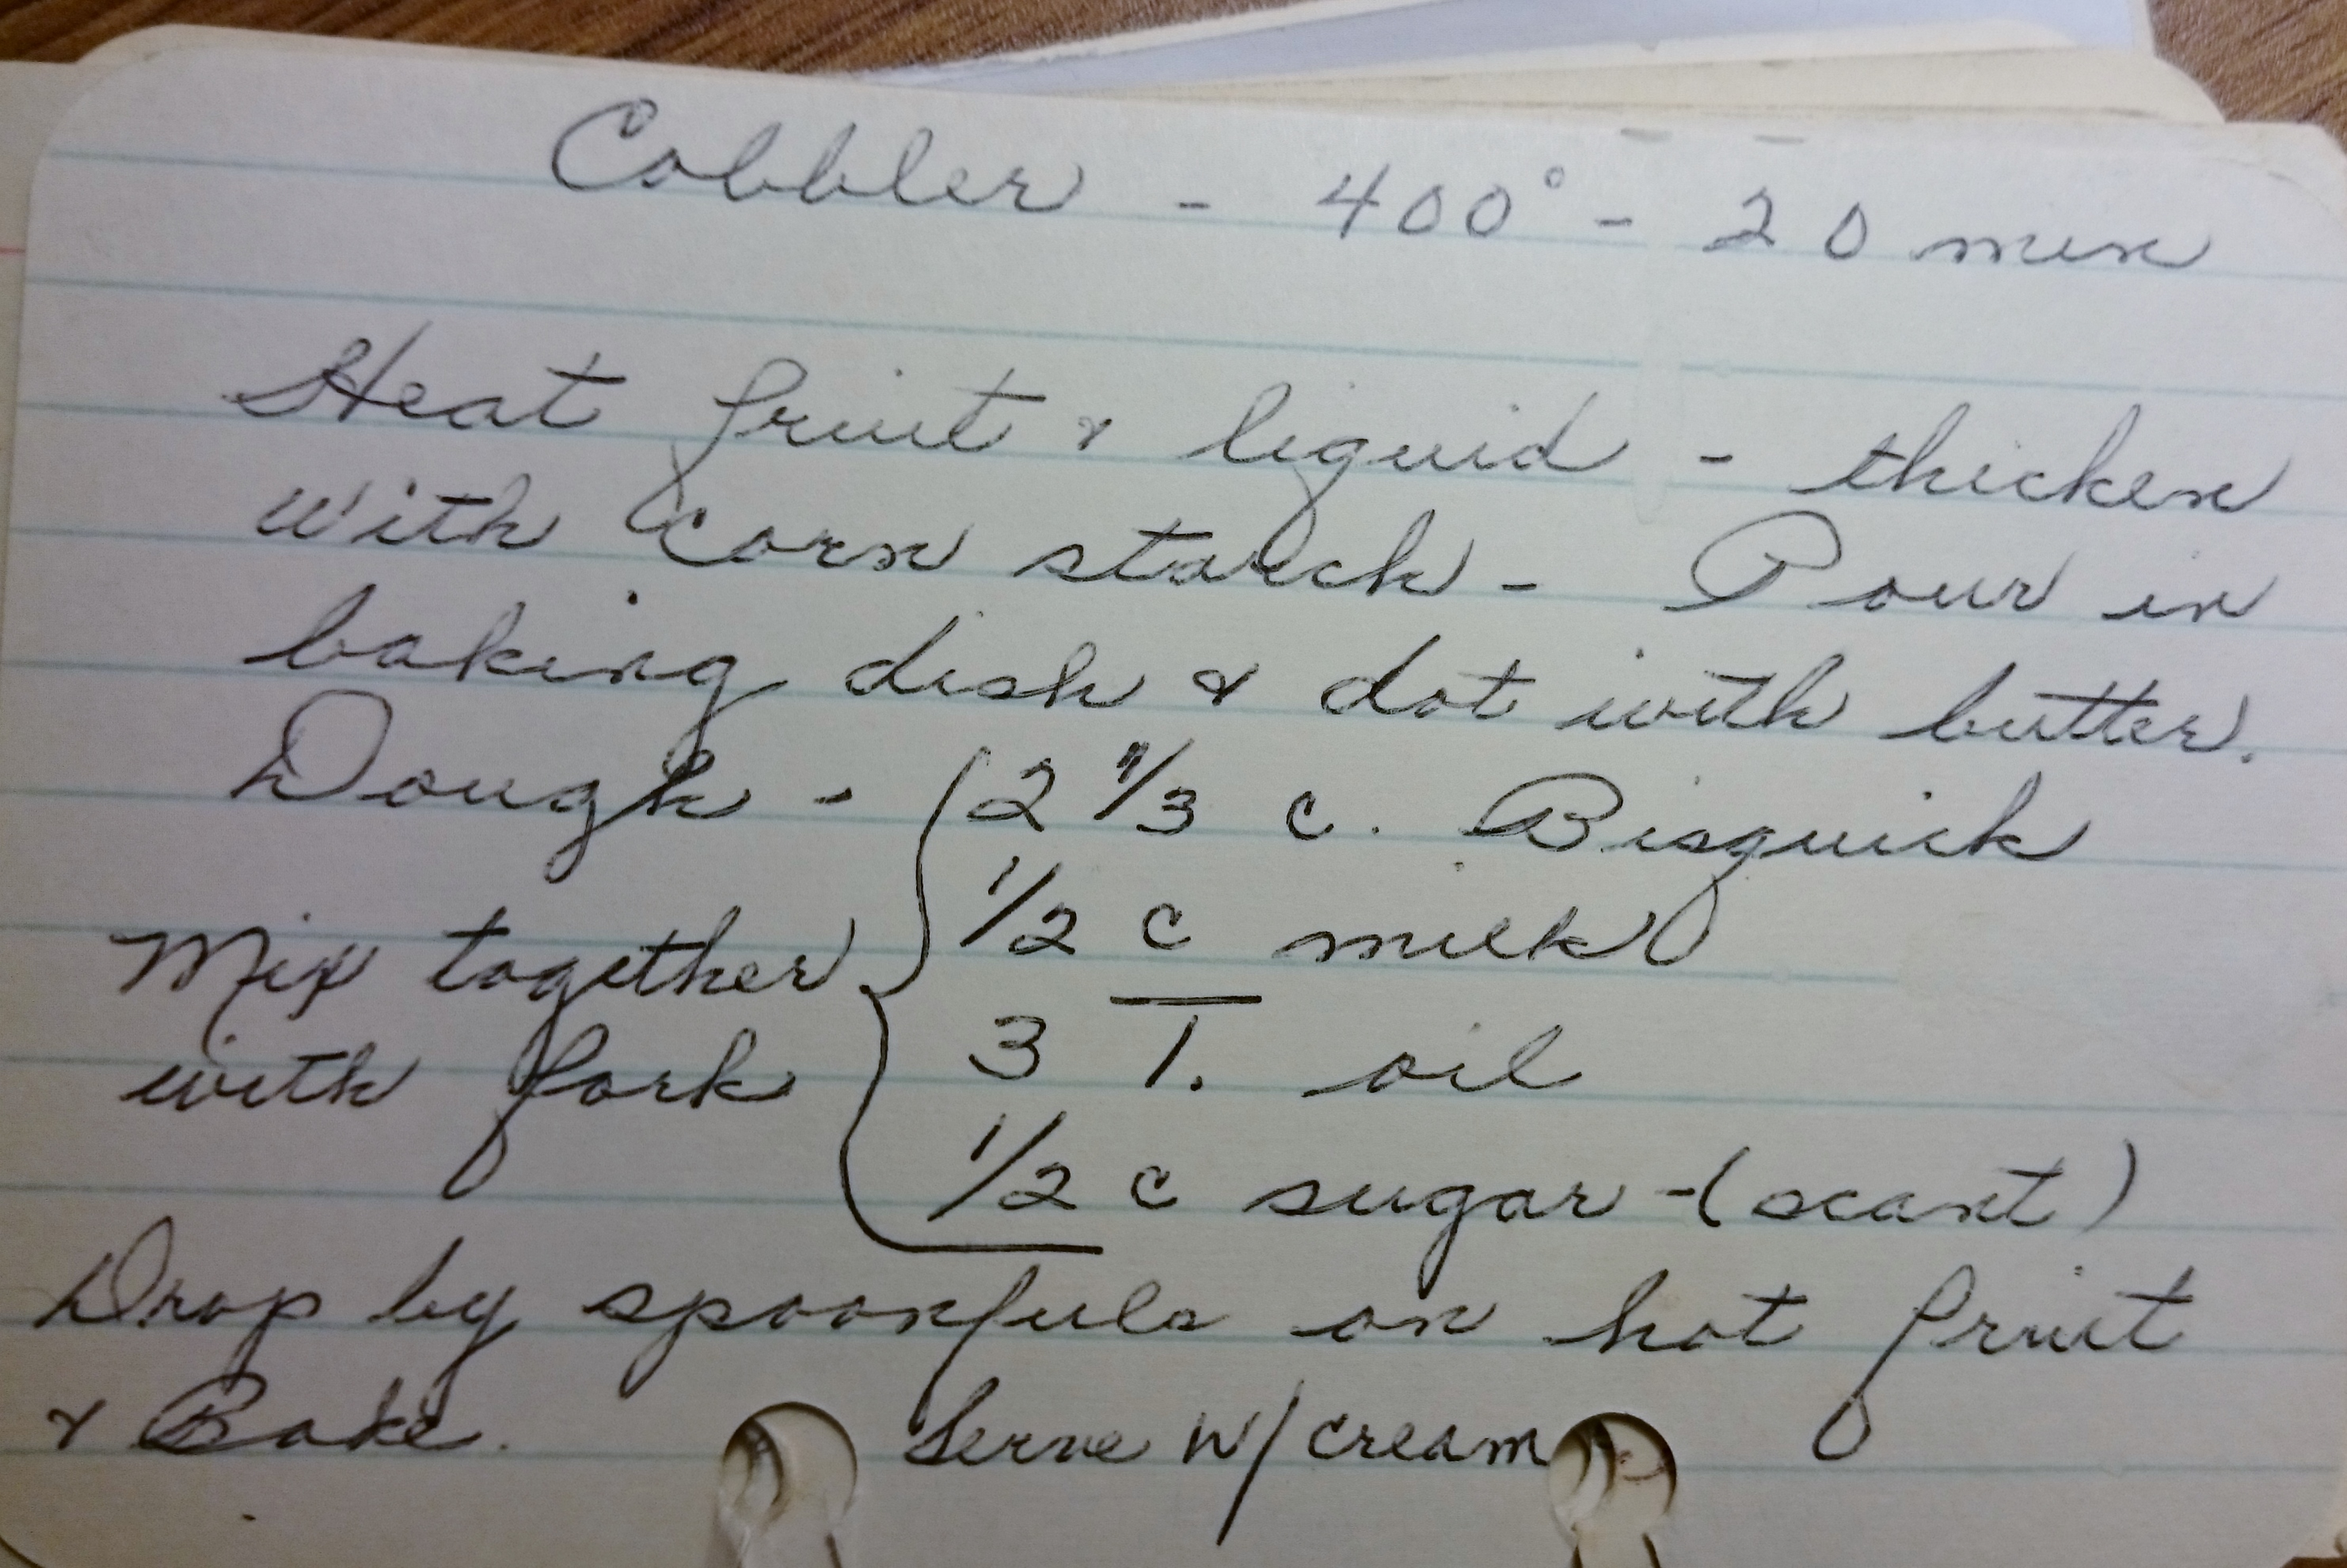 Cobbler - 400° - 20 min
Heat fruit & liquid - thicken
with corn starch - Pour in
baking dish & dot with butter.
Dough - 2 1/3 c. Bisquick
1/2 c milk
Mix together
3 T. oil
with fork
1/2 c sugar - (scant)
Drop by spoonfuls on hot fruit
& Bake. Serve w/ cream